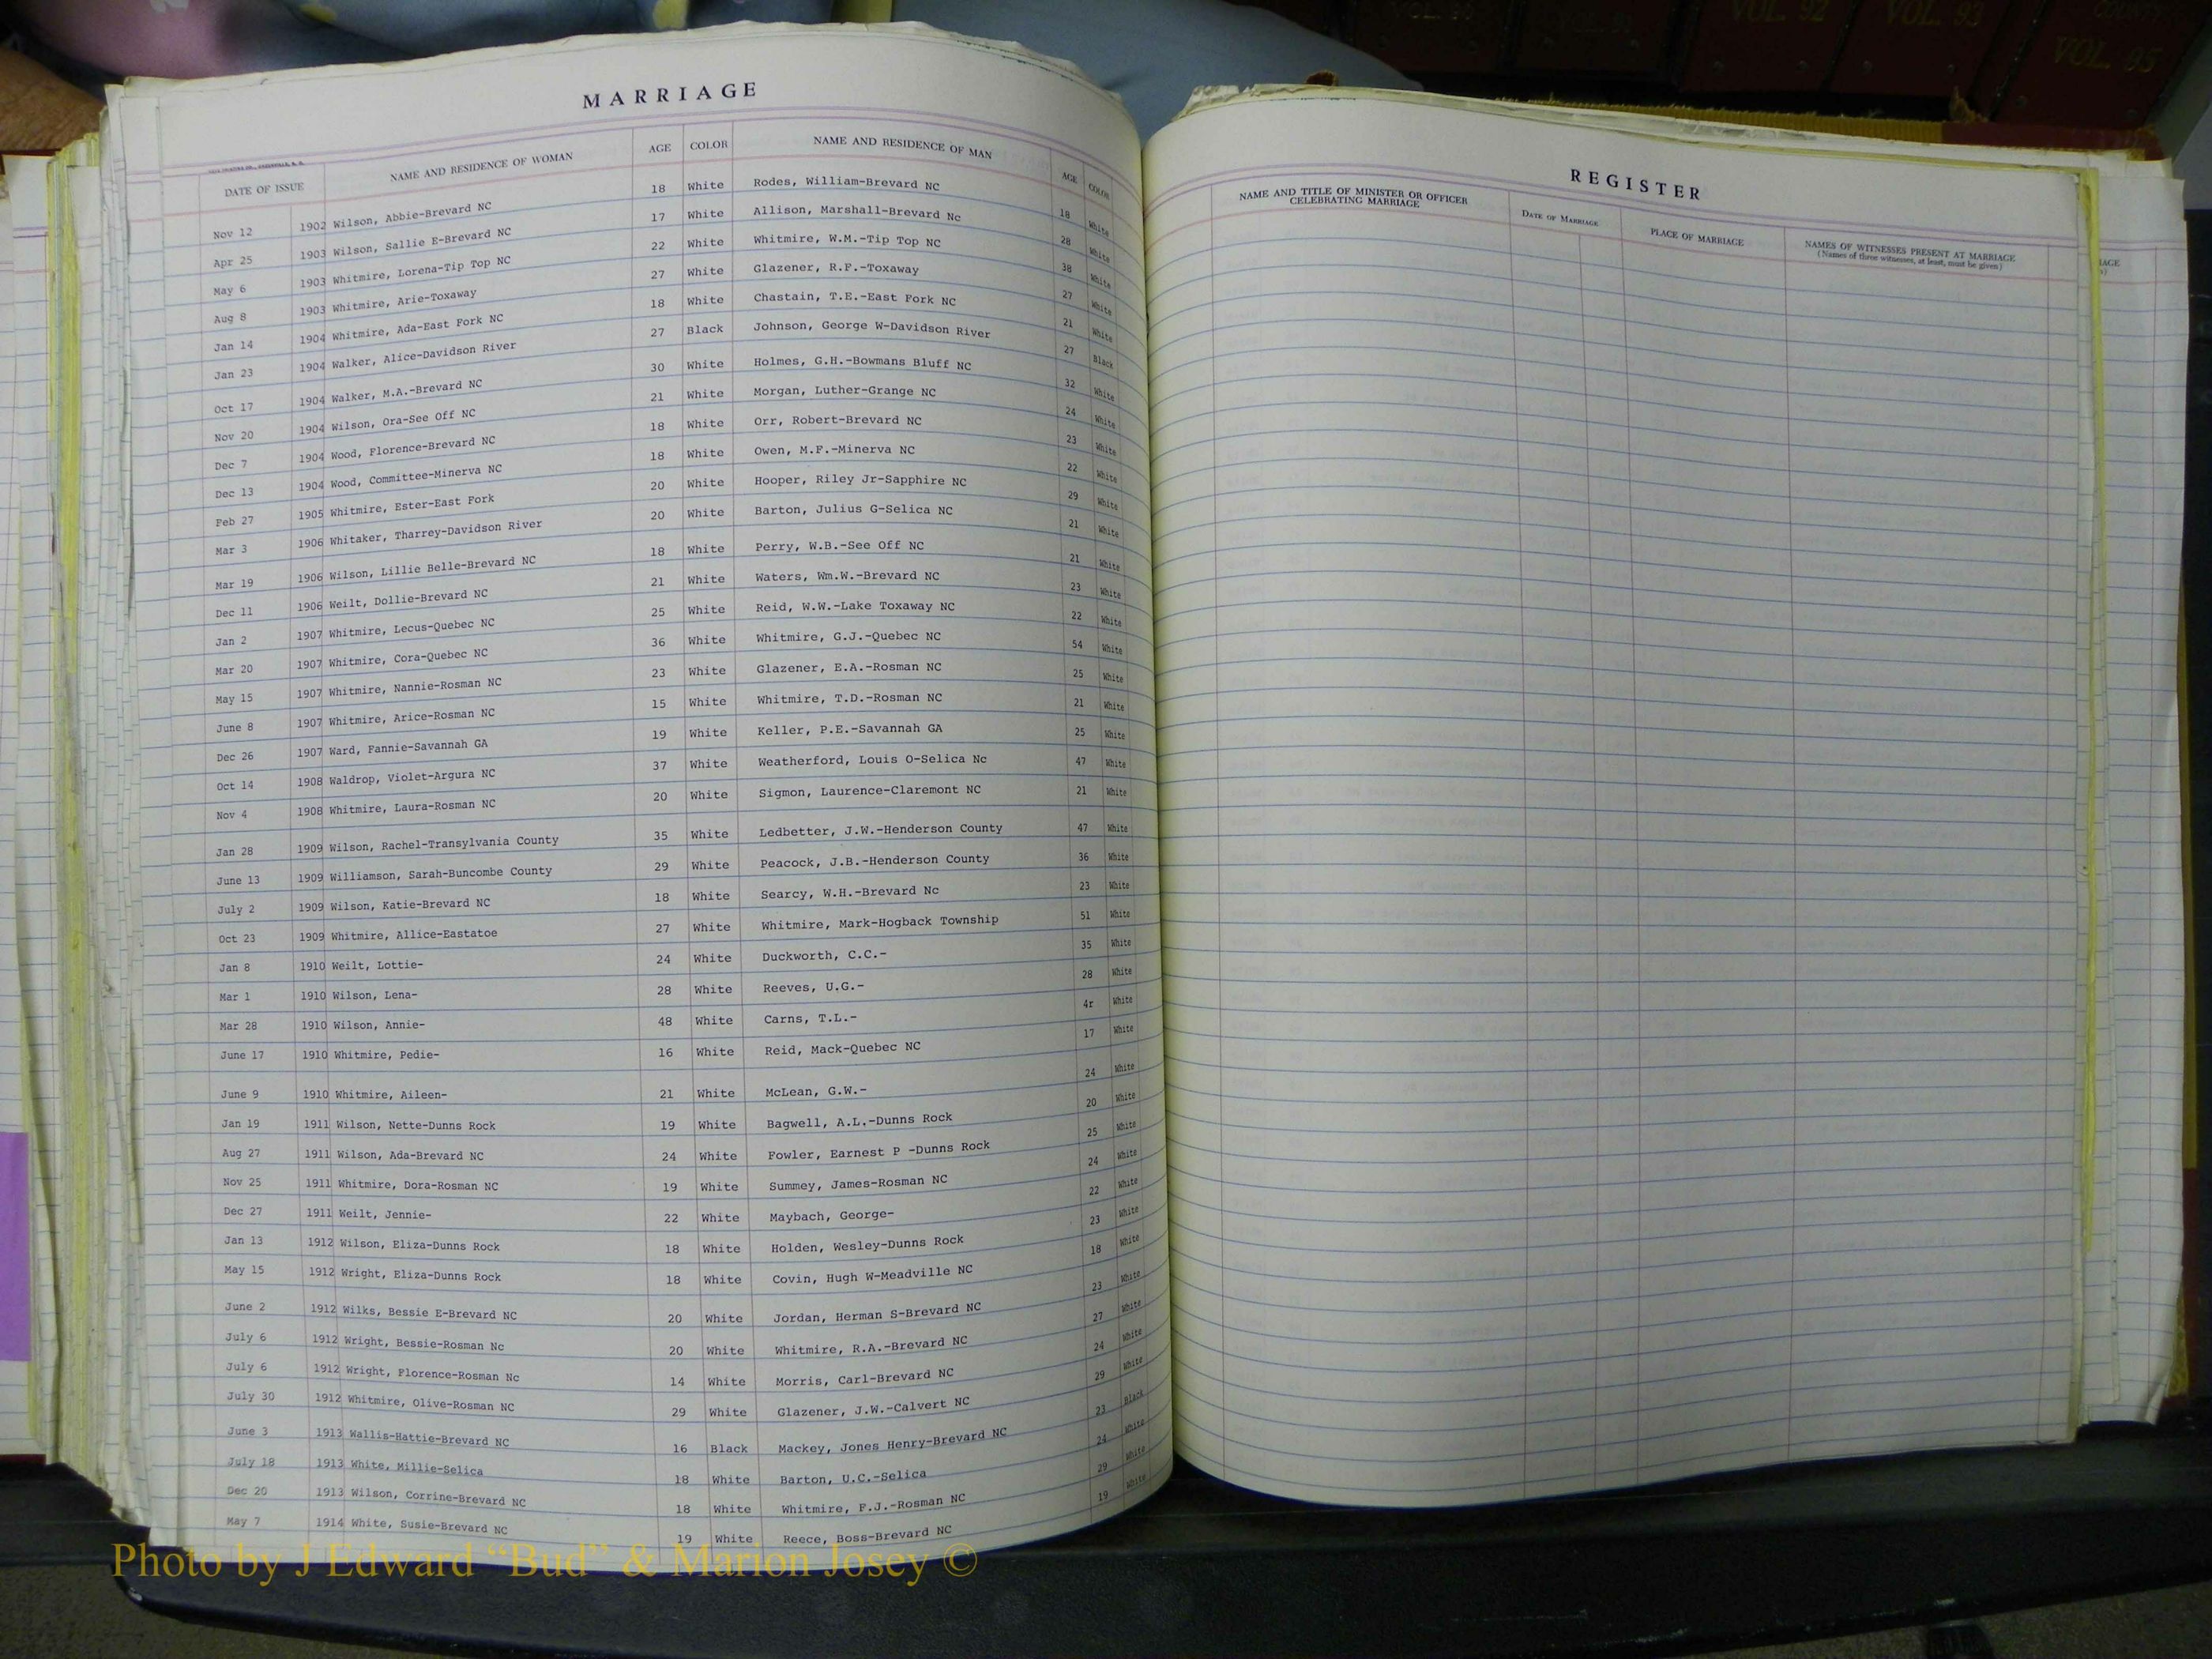 VOL. 90 VOL. 91 VOL. 92 VOL. 93 VOL. 95
MARRIAGE
DATE OF ISSUE NAME AND RESIDENCE OF WOMAN AGE COLOR NAME AND RESIDENCE OF MAN AGE COLOR
Nov 12 1902 Wilson, Abbie-Brevard NC 18 White Rodes, William-Brevard NC 18 White
Apr 25 1903 Wilson, Sallie E-Brevard NC 17 White Allison, Marshall-Brevard Nc 28 White
May 6 1903 Whitmire, Lorena-Tip Top NC 22 White Whitmire, W.M.-Tip Top NC 38 White
Aug 8 1903 Whitmire, Arie-Toxaway 27 White Glazener, R.F.-Toxaway 27 White
Jan 14 1904 Whitmire, Ada-East Fork NC 18 White Chastain, T.E.-East Fork NC 21 White
Jan 23 1904 Walker, Alice-Davidson River 27 Black Johnson, George W-Davidson River 27 Black
Oct 17 1904 Walker, M.A.-Brevard NC 30 White Holmes, G.H.-Bowmans Bluff NC 32 White
Nov 20 1904 Wilson, Ora-See Off NC 21 White Morgan, Luther-Grange NC 24 White
Dec 7 1904 Wood, Florence-Brevard NC 18 White Orr, Robert-Brevard NC 23 White
Dec 13 1904 Wood, Committee-Minerva NC 18 White Owen, M.F.-Minerva NC 22 White
Feb 27 1905 Whitmire, Ester-East Fork 20 White Hooper, Riley Jr-Sapphire NC 29 White
Mar 3 1906 Whitaker, Tharrey-Davidson River 20 White Barton, Julius G-Selica NC 21 White
Mar 19 1906 Wilson, Lillie Belle-Brevard NC 18 White Perry, W.B.-See Off NC 21 White
Dec 11 1906 Weilt, Dollie-Brevard NC 21 White Waters, Wm.W.-Brevard NC 23 White
Jan 2 1907 Whitmire, Lecus-Quebec NC 25 White Reid, W.W.-Lake Toxaway NC 22 White
Mar 20 1907 Whitmire, Cora-Quebec NC 36 White Whitmire, G.J.-Quebec NC 54 White
May 15 1907 Whitmire, Nannie-Rosman NC 23 White Glazener, E.A.-Rosman NC 25 White
June 8 1907 Whitmire, Arice-Rosman NC 15 White Whitmire, T.D.-Rosman NC 21 White
Dec 26 1907 Ward, Fannie-Savannah GA 19 White Keller, P.E.-Savannah GA 25 White
Oct 14 1908 Waldrop, Violet-Argura NC 37 White Weatherford, Louis O-Selica Nc 47 White
Nov 4 1908 Whitmire, Laura-Rosman NC 20 White Sigmon, Laurence-Claremont NC 21 White
Jan 28 1909 Wilson, Rachel-Transylvania County 35 White Ledbetter, J.W.-Henderson County 47 White
June 13 1909 Williamson, Sarah-Buncombe County 29 White Peacock, J.B.-Henderson County 36 White
July 2 1909 Wilson, Katie-Brevard NC 18 White Searcy, W.H.-Brevard Nc 23 White
Oct 23 1909 Whitmire, Allice-Eastatoe 27 White Whitmire, Mark-Hogback Township 51 White
Jan 8 1910 Weilt, Lottie- 24 White Duckworth, C.C.- 35 White
Mar 1 1910 Wilson, Lena- 28 White Reeves, U.G.- 28 White
Mar 28 1910 Wilson, Annie- 48 White Carns, T.L.- 4r White
June 17 1910 Whitmire, Pedie- 16 White Reid, Mack-Quebec NC 17 White
June 9 1910 Whitmire, Aileen- 21 White McLean, G.W.- 24 White
Jan 19 1911 Wilson, Nette-Dunns Rock 19 White Bagwell, A.L.-Dunns Rock 20 White
Aug 27 1911 Wilson, Ada-Brevard NC 24 White Fowler, Earnest P -Dunns Rock 25 White
Nov 25 1911 Whitmire, Dora-Rosman NC 19 White Summey, James-Rosman NC 24 White
Dec 27 1911 Weilt, Jennie- 22 White Maybach, George- 22 White
Jan 13 1912 Wilson, Eliza-Dunns Rock 18 White Holden, Wesley-Dunns Rock 23 White
May 15 1912 Wright, Eliza-Dunns Rock 18 White Covin, Hugh W-Meadville NC 18 White
June 2 1912 Wilks, Bessie E-Brevard NC 20 White Jordan, Herman S-Brevard NC 23 White
July 6 1912 Wright, Bessie-Rosman Nc 20 White Whitmire, R.A.-Brevard NC 27 White
July 6 1912 Wright, Florence-Rosman Nc 14 White Morris, Carl-Brevard NC 24 White
July 30 1912 Whitmire, Olive-Rosman NC 29 White Glazener, J.W.-Calvert NC 29 White
June 3 1913 Wallis-Hattie-Brevard NC 16 Black Mackey, Jones Henry-Brevard NC 23 Black
July 18 1913 White, Millie-Selica 18 White Barton, U.C.-Selica 24 White
Dec 20 1913 Wilson, Corrine-Brevard NC 18 White Whitmire, F.J.-Rosman NC 29 White
May 7 1914 White, Susie-Brevard NC 19 White Reece, Boss-Brevard NC 19 White
REGISTER
NAME AND TITLE OF MINISTER OR OFFICER CELEBRATING MARRIAGE DATE OF MARRIAGE PLACE OF MARRIAGE NAMES OF WITNESSES PRESENT AT MARRIAGE
(Names of three witnesses, at least, must be given)
Photo by J Edward “Bud” & Marion Josey ©